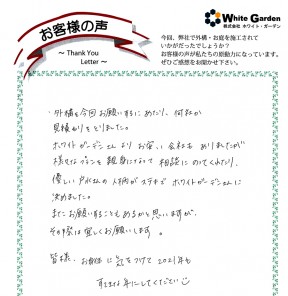 お客様の声
～ Thank You
Letter ～
White Garden
株式会社 ホワイト・ガーデン
今回、弊社で外構・お庭を施工されて
いかがだったでしょうか？
お客様の声が私たちの原動力になっています。
ぜひご感想をお聞かせ下さい。
・外構を今回お願いするにあたり、何社か
見積もりをとりました。
ホワイトガーデンさんよりお安い会社もありましたが
様々なプランを親身になって相談にのってくれたり、
優しい戸水さんの人柄がステキでホワイトガーデンさんに
決めました。
またお願いすることもあるかと思いますが、
その際は宜しくお願いします。
皆様、お身体に気をつけて2021年も
すてきな年にしてください